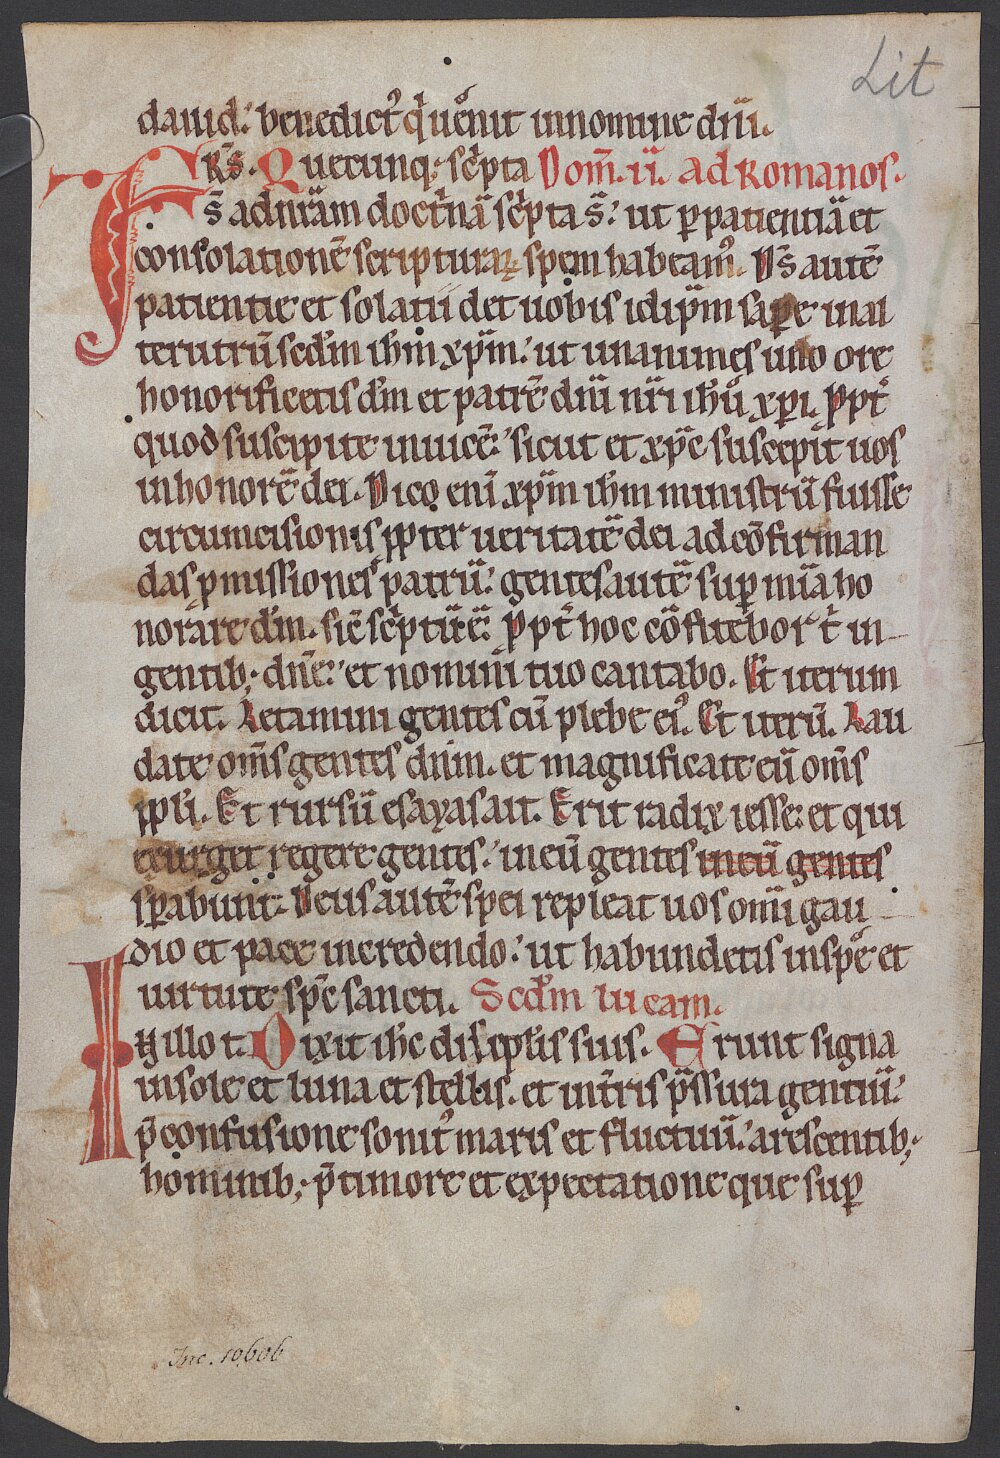 Lit
dauid.' benedict᾿ q̇ uēnit innomine dn̄i.
FRS̄. Quecunq; sc̀pta Dom̄. ii. ad Romanos.
s̄ adnr̄am doct̀nā sc̀pta s̄.' ut ꝑpatientiā et
consolationē scripturaꝝ spem habeam᾿. Ds̄ autē
patientie et solatii det uobis idip̄m saꝑe inal
terutrū scd̄m ihm̄ xp̄m.' ut unanimes uno ore
honorificetis dm̄ et patrē dn̄i nr̄i ihū xp̄i. ꝓpt̄
quod suscipite inuicē.' sicut et xp̄c suscepit uos
inhonorē dei. Dico enī xp̄m ihm̄ ministrū fuisse
circumcisionis ꝓpter ueritatē dei ad cōfirman
das ꝓmissiones patrū.' gentes autē suꝑ mīa ho
norare dm̄. sic̄ sc̀ptū ē.' ꝓpt̄ hoc cōfitebor t̄ in
gentib; dn̄e.' et nomini tuo cantabo. Et iterum
dicit. Letamini gentes cū plebe ei᾿. Et iterū. Lau
date om̄s gentes dn̄m. et magnificate eū om̄s
ppl̄i. Et rursū esayas ait. Erit radix iesse.' et qui
exurget regere gentes.' ineū gentes ineū gentes
sꝑabunt. Deus autē spei repleat uos om̄i gau
dio et pace incredendo.' ut habundetis inspe et
uirtute sp̄c sancti. Scd̄m lucam.
IN illo t. Dixit ihc̄ discipl̄is suis. Erunt signa
insole et luna et stellis. et int̄ris p̄ssura gentiū.'
p̄ confusione sonit᾿ maris et fluctuū.' arescentib;
hominib; p̄ timore et expectatione que suꝑ
Inc. 10606